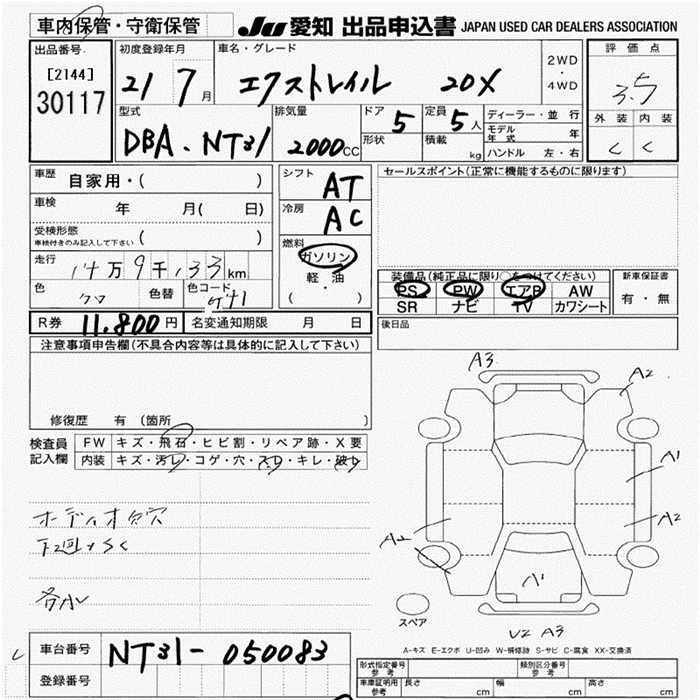 車内保管・守衛保管
JU 愛知 出品申込書 JAPAN USED CAR DEALERS ASSOCIATION
出品番号 初度登録年月 車名・グレード 2WD・4WD 評価点
[2144]
30117 21 7月 エクストレイル 20X 3.5
型式 排気量 ドア 5 定員 5人 ディーラー・並行 外装 内装
DBA・NT31 2000CC 形状 積載 kg モデル年式 年 C C
ハンドル 左・右
車歴 自家用・( ) シフト AT セールスポイント(正常に機能するものに限ります)
車検 年 月( 日) 冷房 AC
受検形態
車検付きのみ記入して下さい ( )
燃料
走行 14万9千133km ガソリン
軽・油
( )
装備品(純正品に限り○をつけてください) 新車保証書
色 クロ 色替 色コード G41 PS PW エアB AW 有・無
SR ナビ TV カワシート
R券 11.800円 名変通知期限 月 日 後日品
注意事項申告欄(不具合内容等は具体的に記入して下さい)
修復歴 有 (箇所
検査員記入欄 FW キズ・飛石・ヒビ割・リペア跡・X要
内装 キズ・汚レ・コゲ・穴・スレ・キレ・破レ
オーディオ欠穴
下回りSC
各小
A3
A2
A1
A2
A2
A1
スペア
U2 A3
A-キズ E-エクボ U-凹み W-補修跡 S-サビ C-腐食 XX-交換済
車台番号 NT31-050083
登録番号
形式指定番号 参考 類別区分番号 参考
車庫証明用 参考 長さ cm 幅 cm 高さ cm